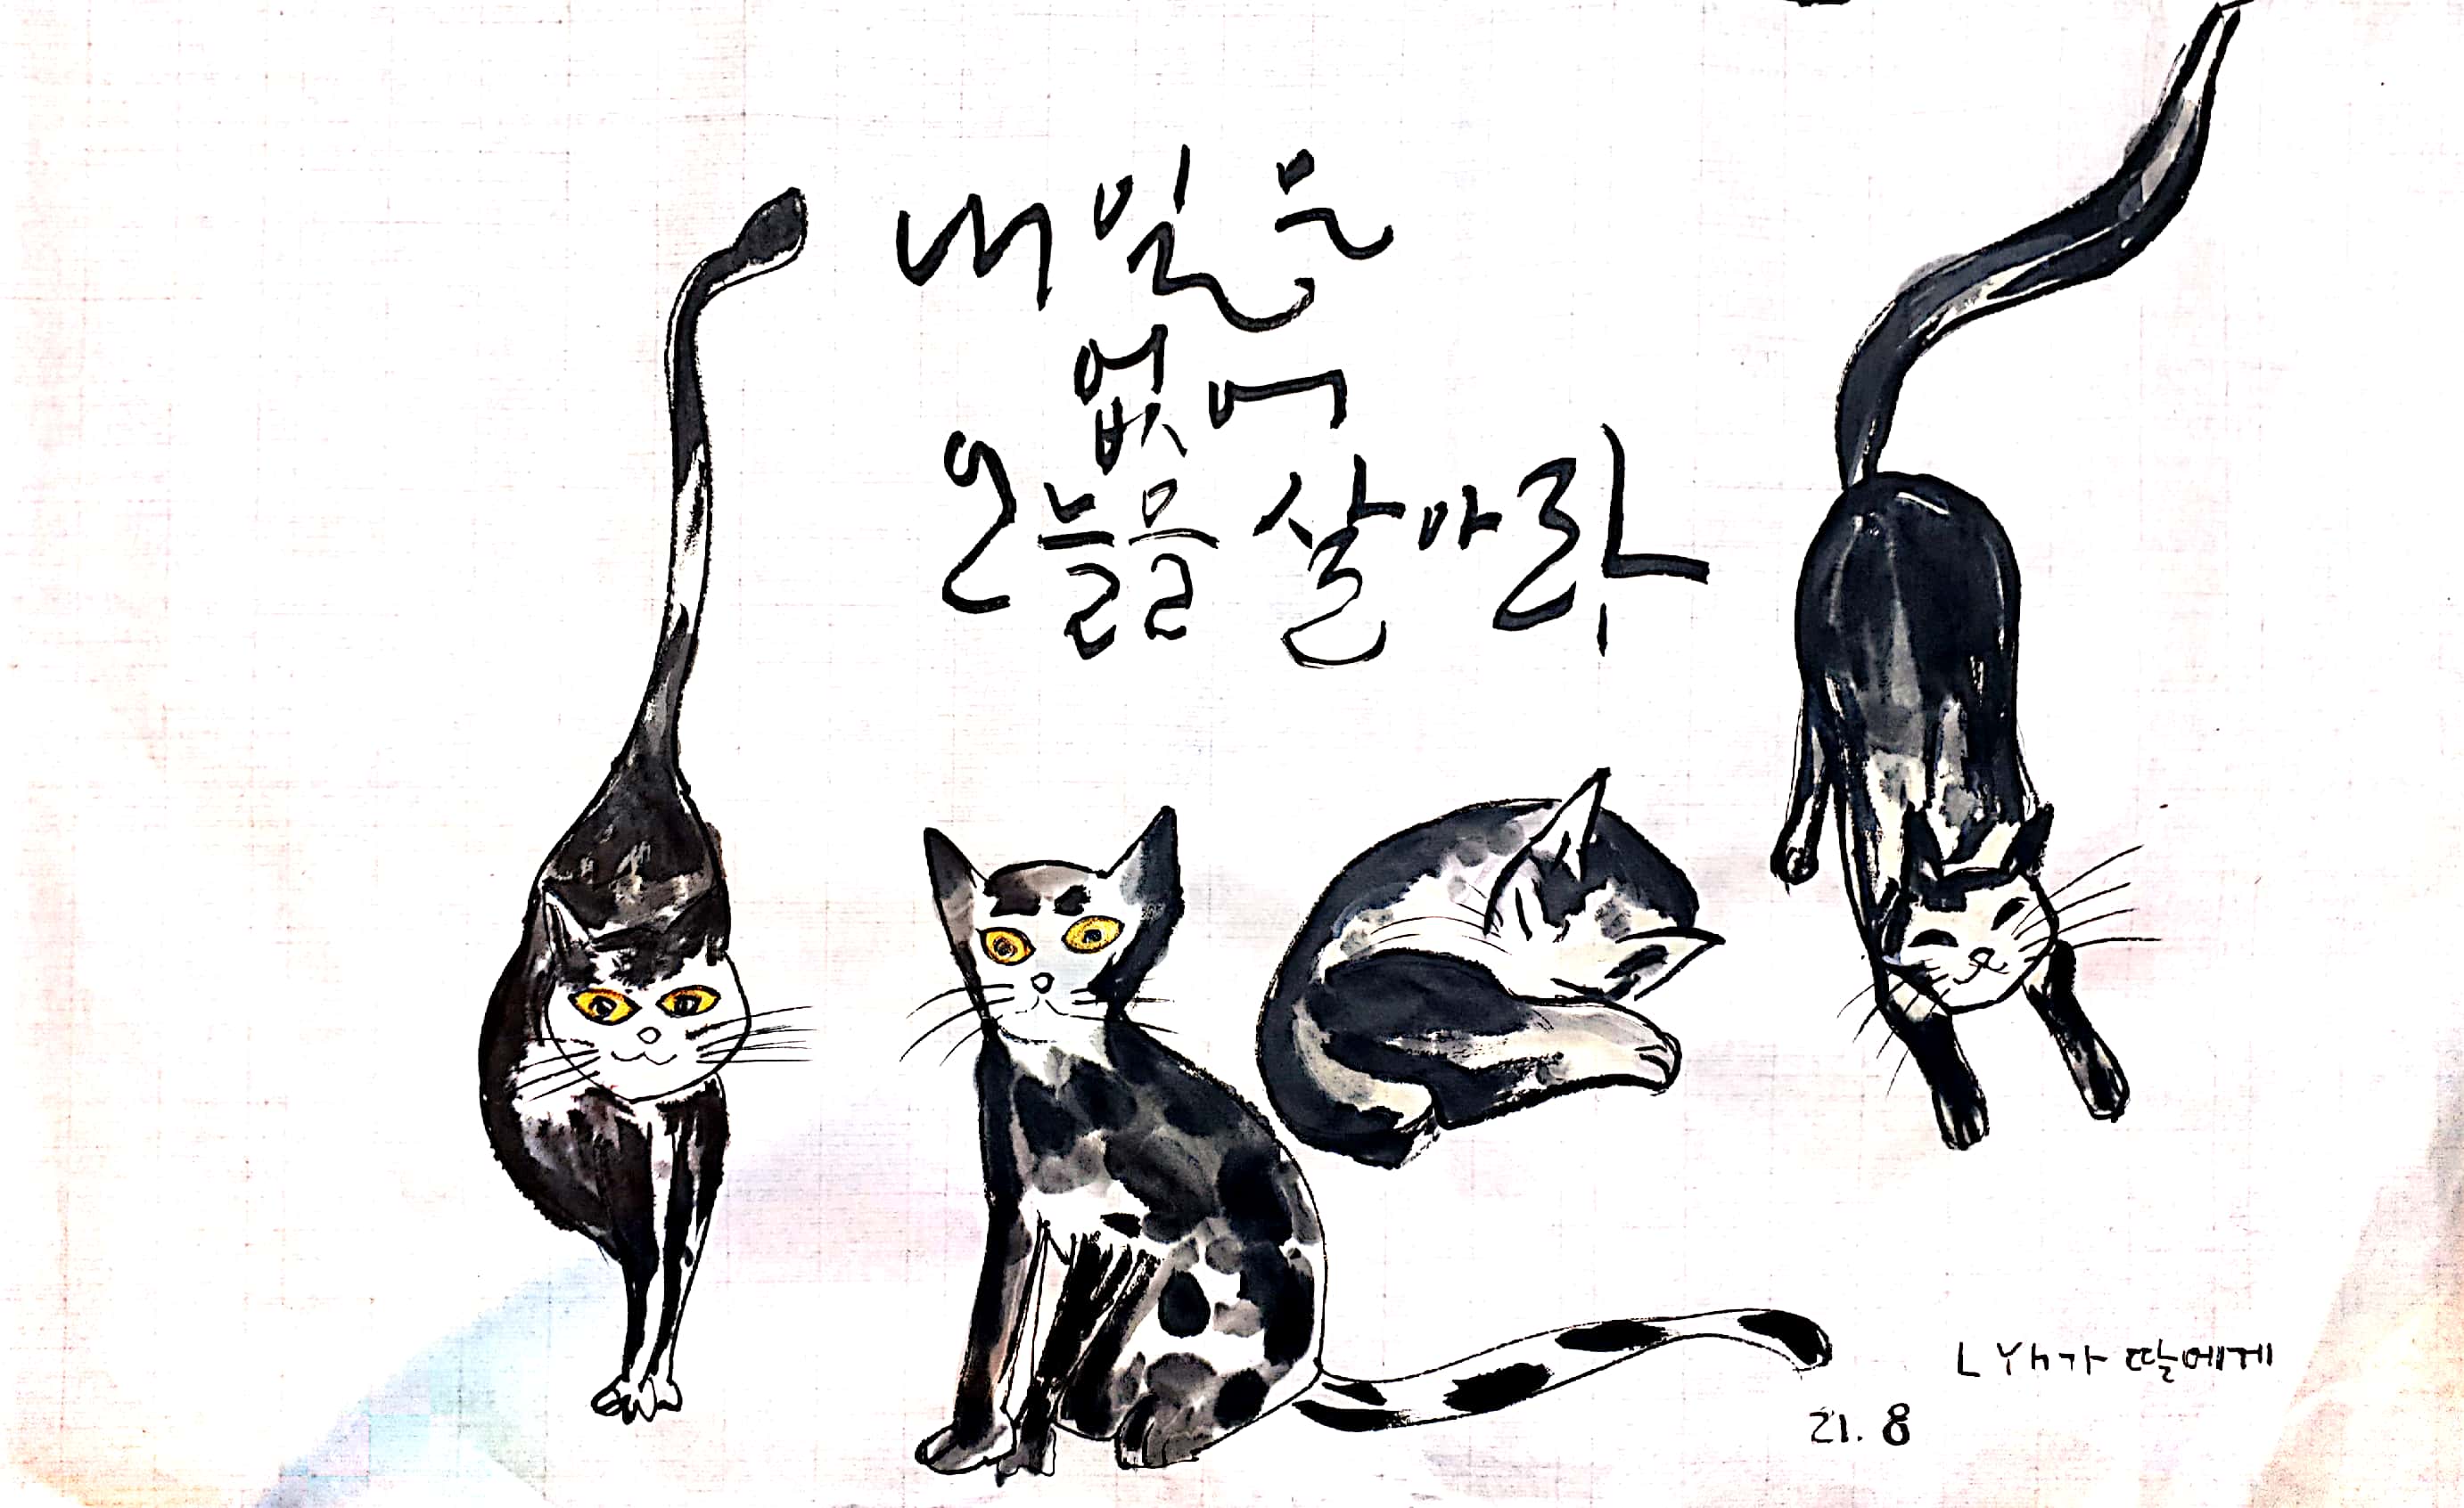 내일은
없어
오늘을 살아라
LYh가 딸에게
21. 8